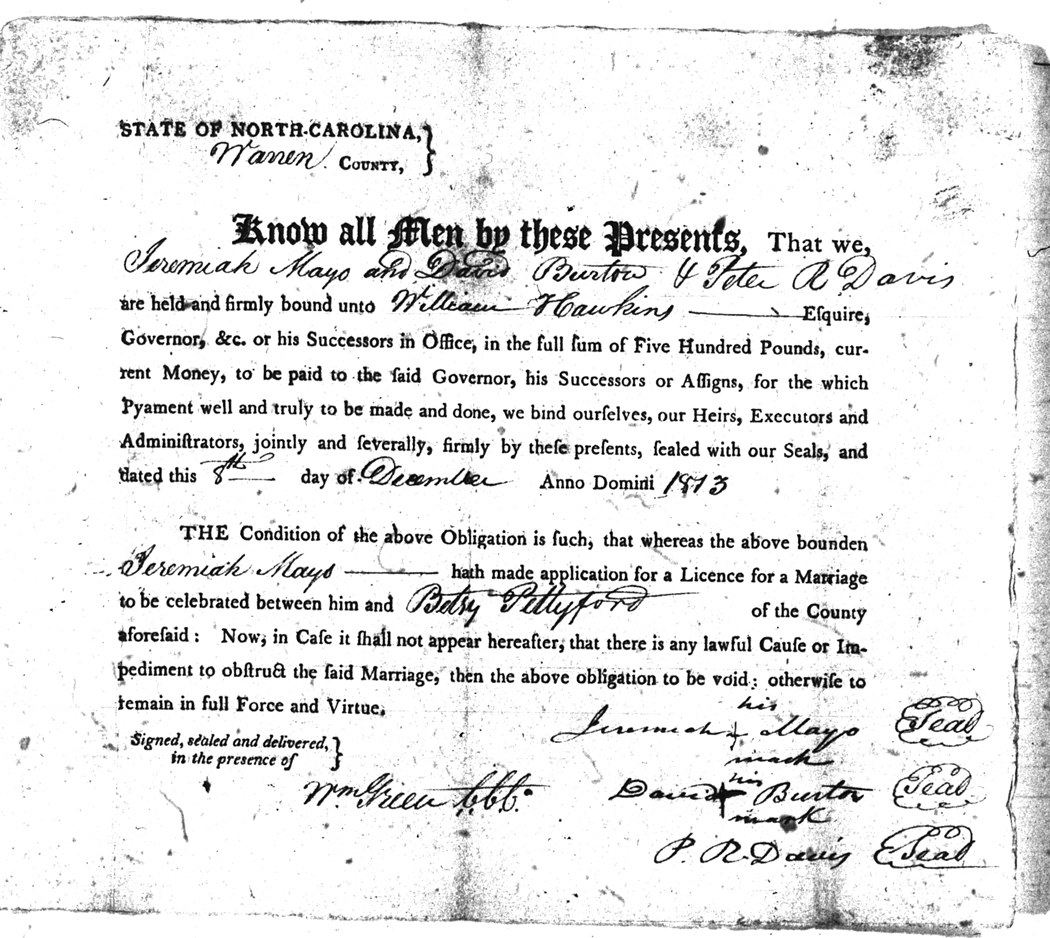 STATE OF NORTH-CAROLINA,
Warren COUNTY,
Know all Men by these Presents, That we,
Jeremiah Mayo and David Burton & Peter R Davis
are held and firmly bound unto William Hawkins Eſquire,
Governor, &c. or his Successors in Office, in the full ſum of Five Hundred Pounds, cur-
rent Money, to be paid to the ſaid Governor, his Successors or Aſſigns, for the which
Pyament well and truly to be made and done, we bind ourſelves, our Heirs, Executors and
Adminiſtrators, jointly and ſeverally, firmly by theſe preſents, ſealed with our Seals, and
dated this 8th day of December Anno Domini 1813
THE Condition of the above Obligation is ſuch, that whereas the above bounden
Jeremiah Mayo hath made application for a Licence for a Marriage
to be celebrated between him and Betsy Pettyford of the County
aforeſaid: Now, in Caſe it ſhall not appear hereafter, that there is any lawful Cauſe or Im-
pediment to obſtruct the ſaid Marriage, then the above obligation to be void; otherwiſe to
remain in full Force and Virtue.
his
Jeremiah + Mayo Seal
mark
Signed, sealed and delivered,
in the presence of
his
Wm Green David + Burton Seal
mark
P. R. Davis Seal